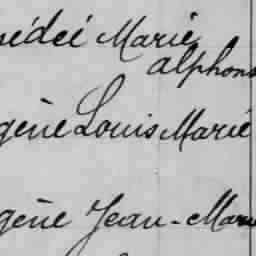 édéé Marie
alphons
gène Louis Marie
gène Jean-Marie